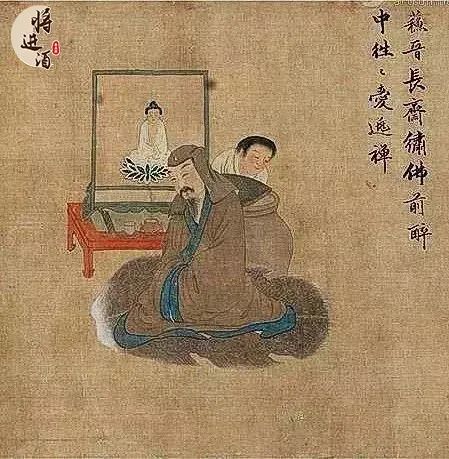 蘇晉長齋繡佛前醉
中往〻愛逃禪
将进酒